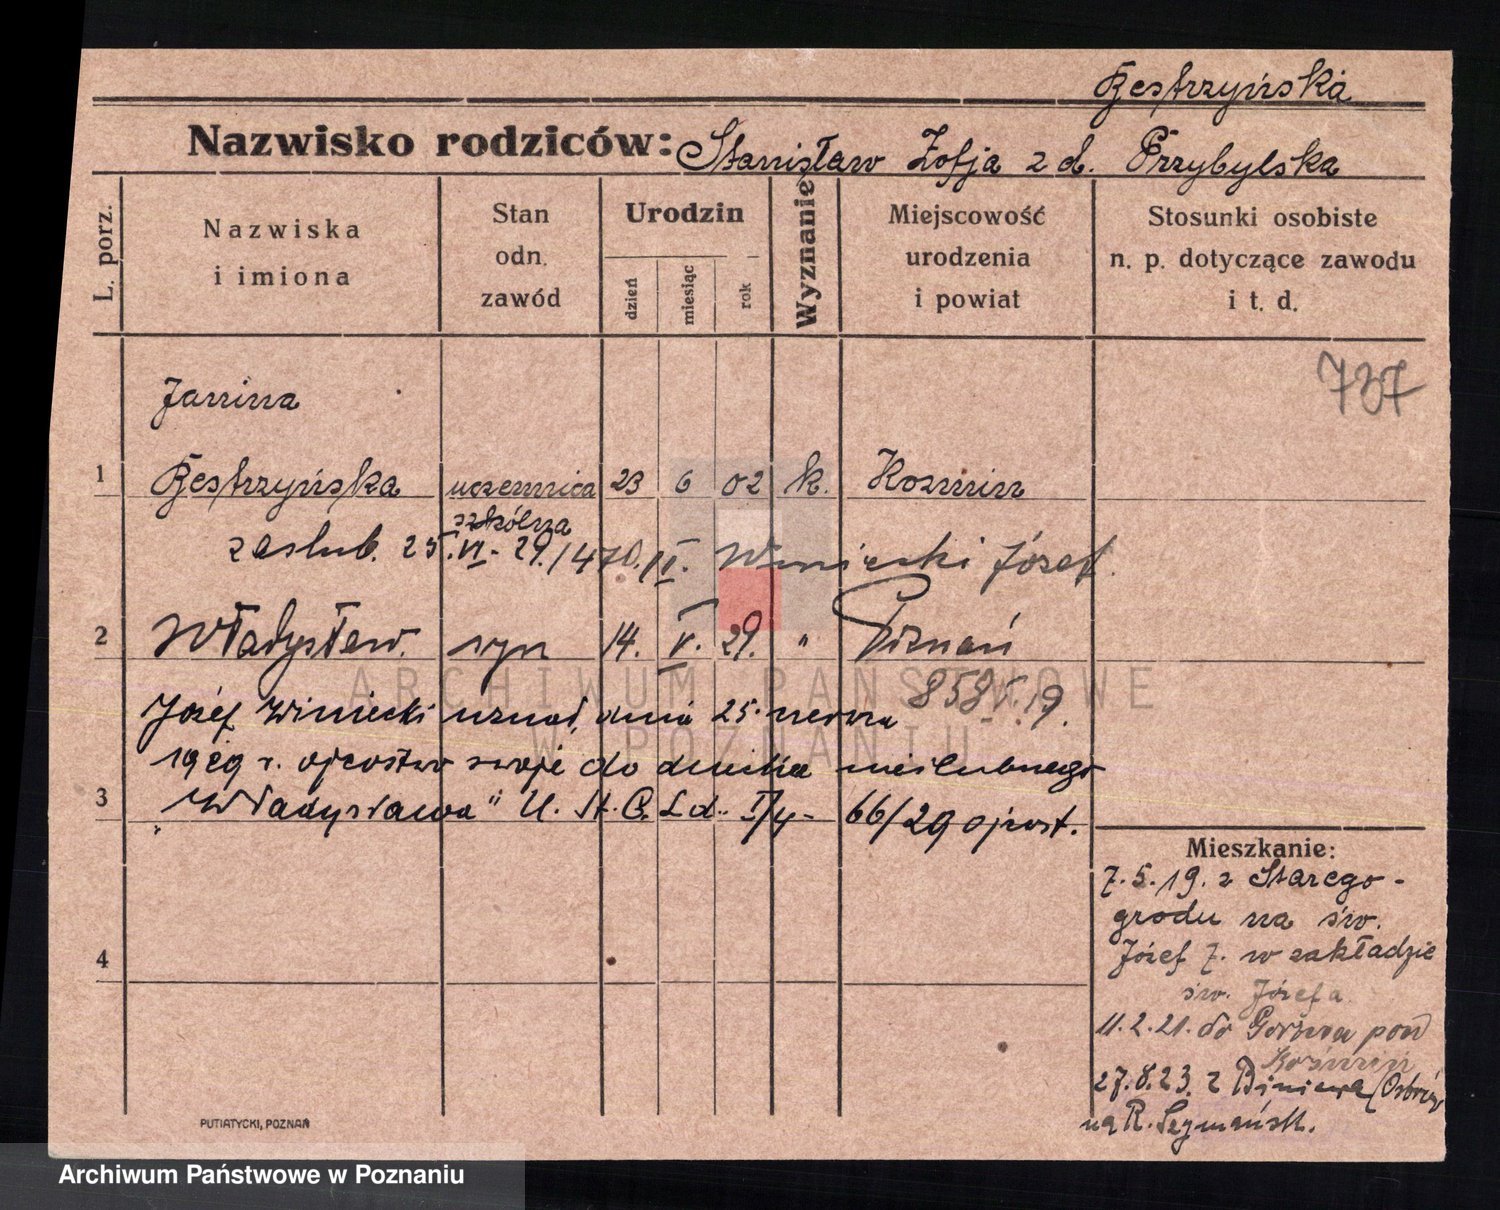 Kestrzyńska
Nazwisko rodziców: Stanisław Zofja z d. Przybylska
L. porz.
Nazwiska
i imiona
Stan
odn.
zawód
Urodzin
dzień
miesiąc
rok
Wyznanie
Miejscowość
urodzenia
i powiat
Stosunki osobiste
n. p. dotyczące zawodu
i t. d.
737
Janina
1 Kestrzyńska uczennica 23 6 02 k. Kozmin
szkólna
zaslub. 25.VI-29./470./II. Winiecki Józef.
2 Władysław. syn 14. V. 29. " Poznań
858 V. 19.
Józef Winiecki uznał dnia 25. czerwca
1929 r. ojcostwo swoje do dziecka nieślubnego
3 "Władysława" U. St. C. Ld. I/4- 66/29 ojcost.
4
Mieszkanie:
7.5.19. z Starego-
grodu na św.
Józef 7. w zakładzie
św. Józefa
11.2.21. do pow
Koźmin
27.8.23. z Biniewa
na R. Szymańsk.
PUTIATYCKI, POZNAŃ
ARCHIWUM PAŃSTWOWE
W POZNANIU
Archiwum Państwowe w Poznaniu